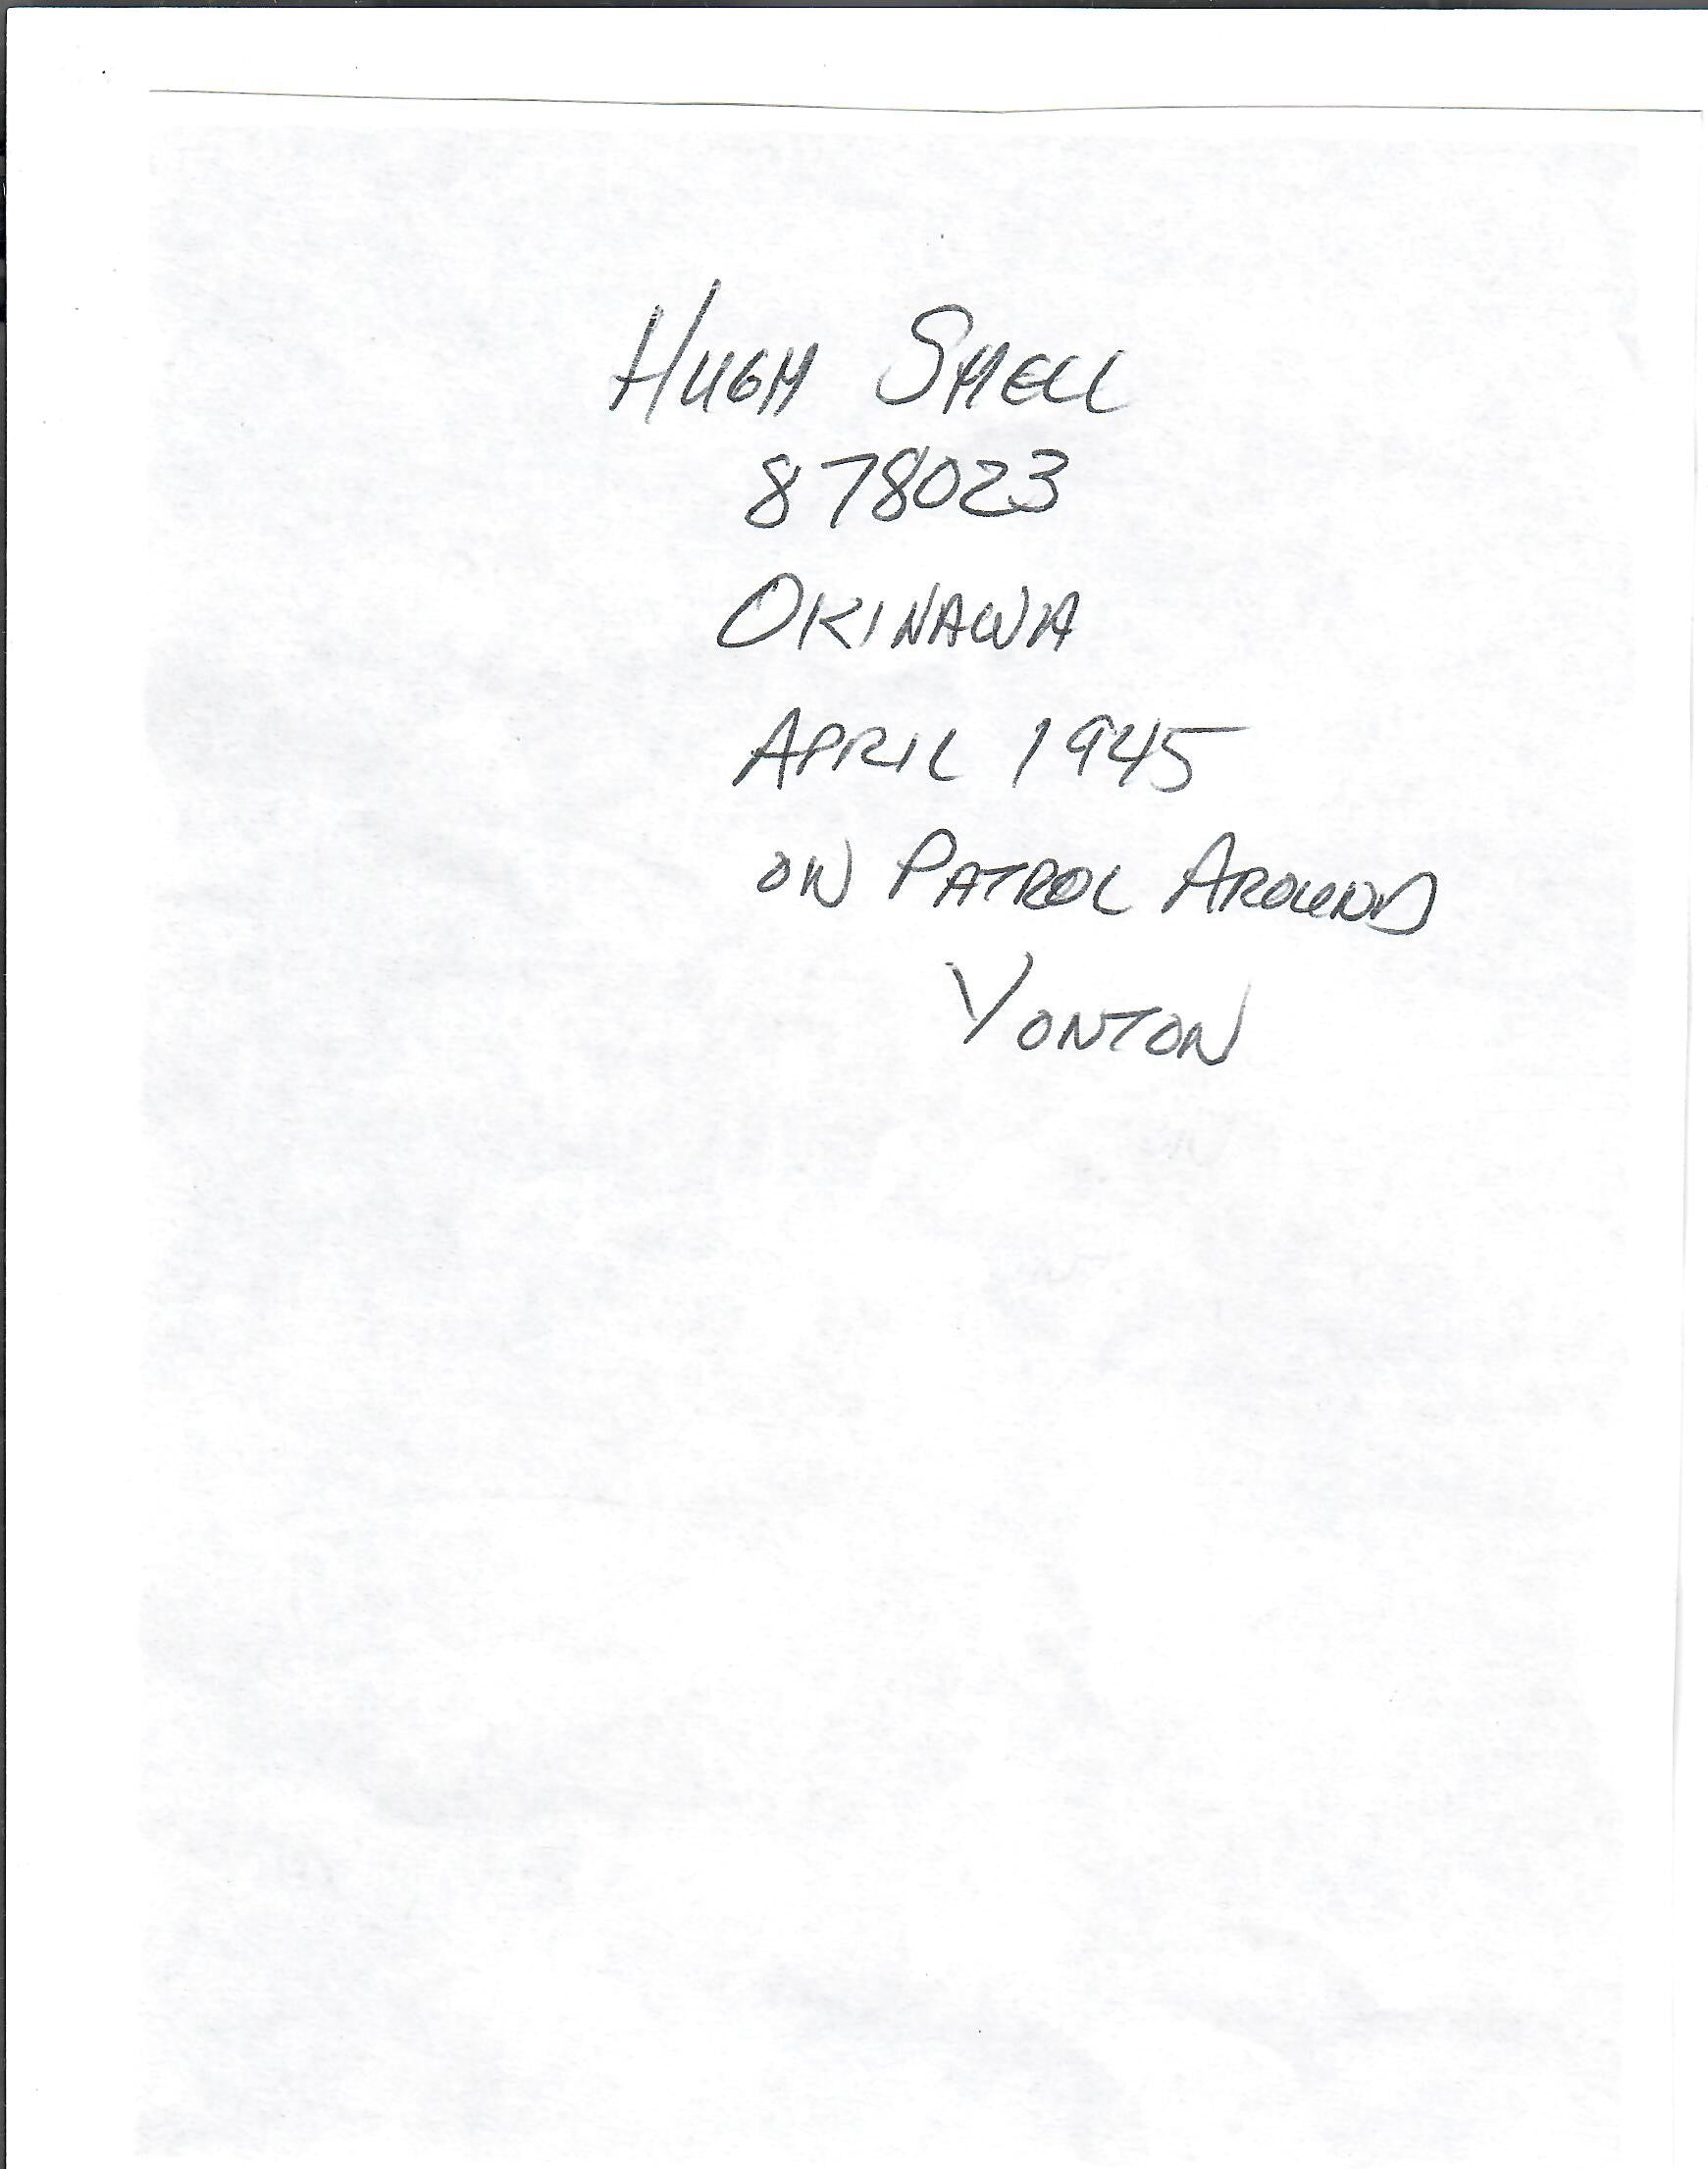 HUGH SHELL
878023
OKINAWA
APRIL 1945
ON PATROL AROUND
YONTON